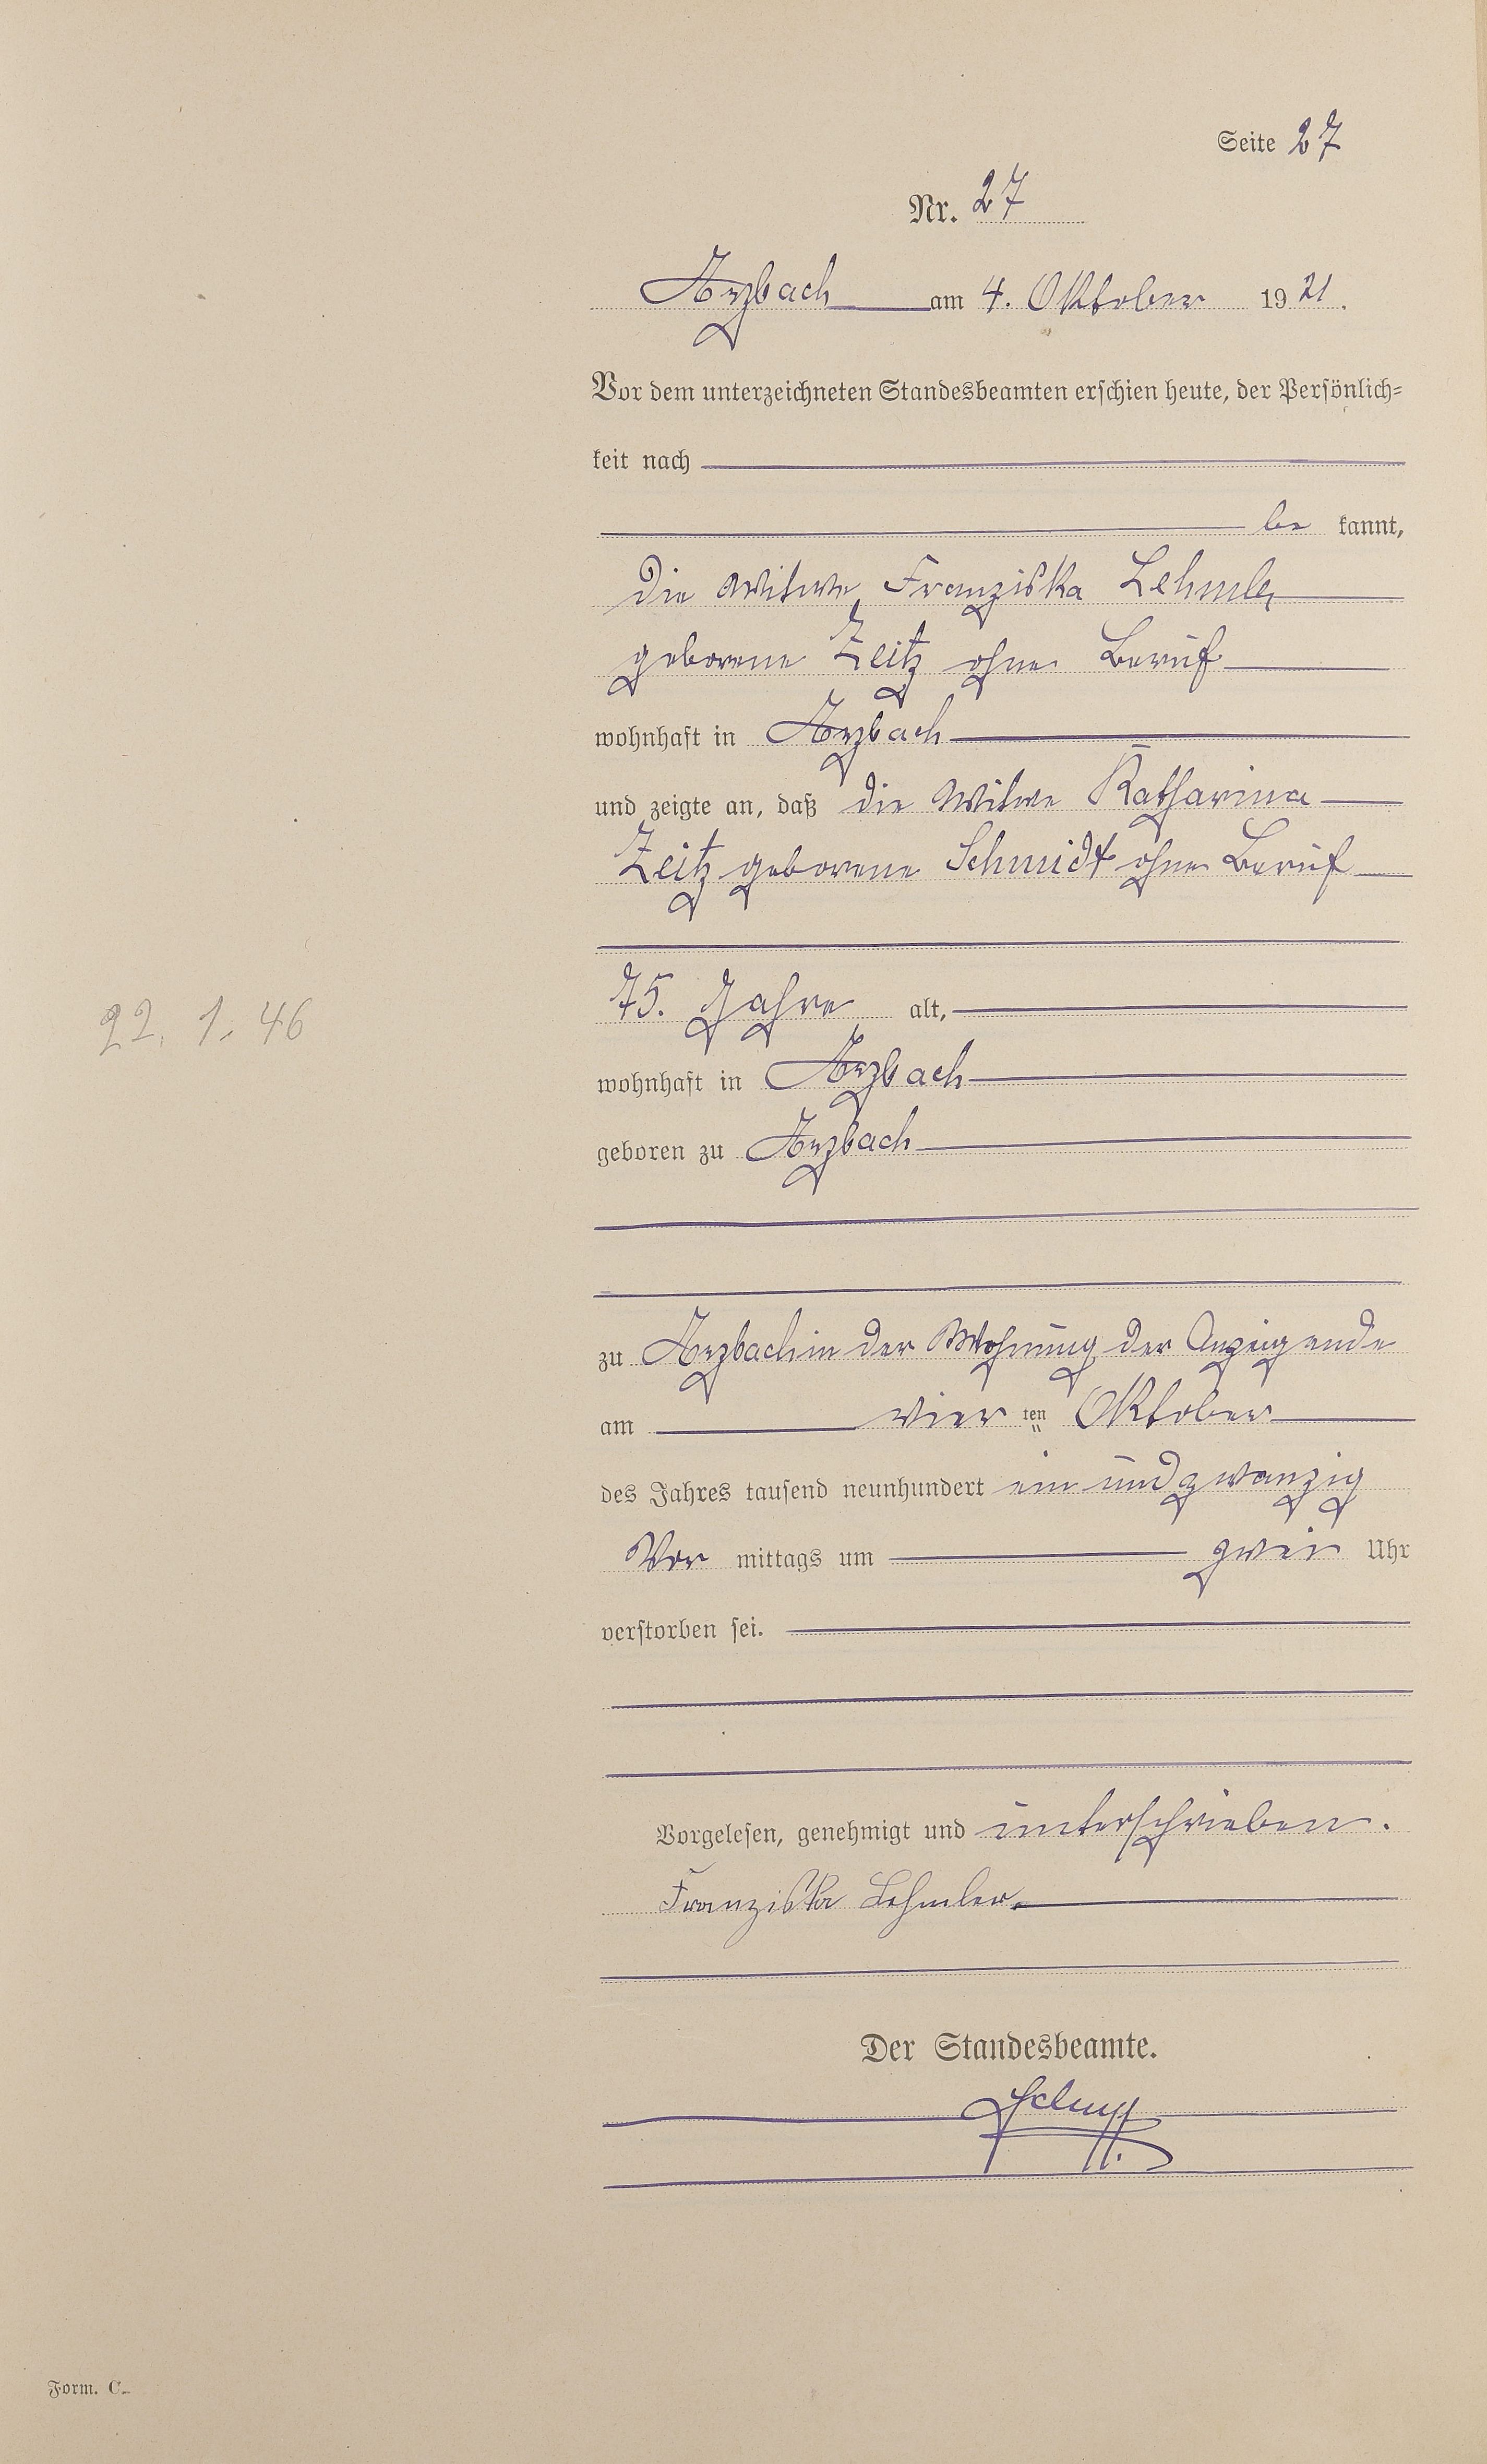 Seite 27
Nr. 27
Arzbach am 4. Oktober 1921.
Vor dem unterzeichneten Standesbeamten erschien heute, der Persönlich-
keit nach
be kannt,
die Witwe Franziska Lehmler
geborene Zeitz ohne Beruf
wohnhaft in Arzbach
und zeigte an, daß die Witwe Katharina
Zeitz geborene Schmidt ohne Beruf
75. Jahre alt,
22. 1. 46
wohnhaft in Arzbach
geboren zu Arzbach
zu Arzbach in der Wohnung der Anzeigende
am vier ten Oktober
des Jahres tausend neunhundert ein und zwanzig
Vor mittags um zwei Uhr
verstorben sei.
Vorgelesen, genehmigt und unterschrieben.
Franziska Lehmler
Der Standesbeamte.
Form. C